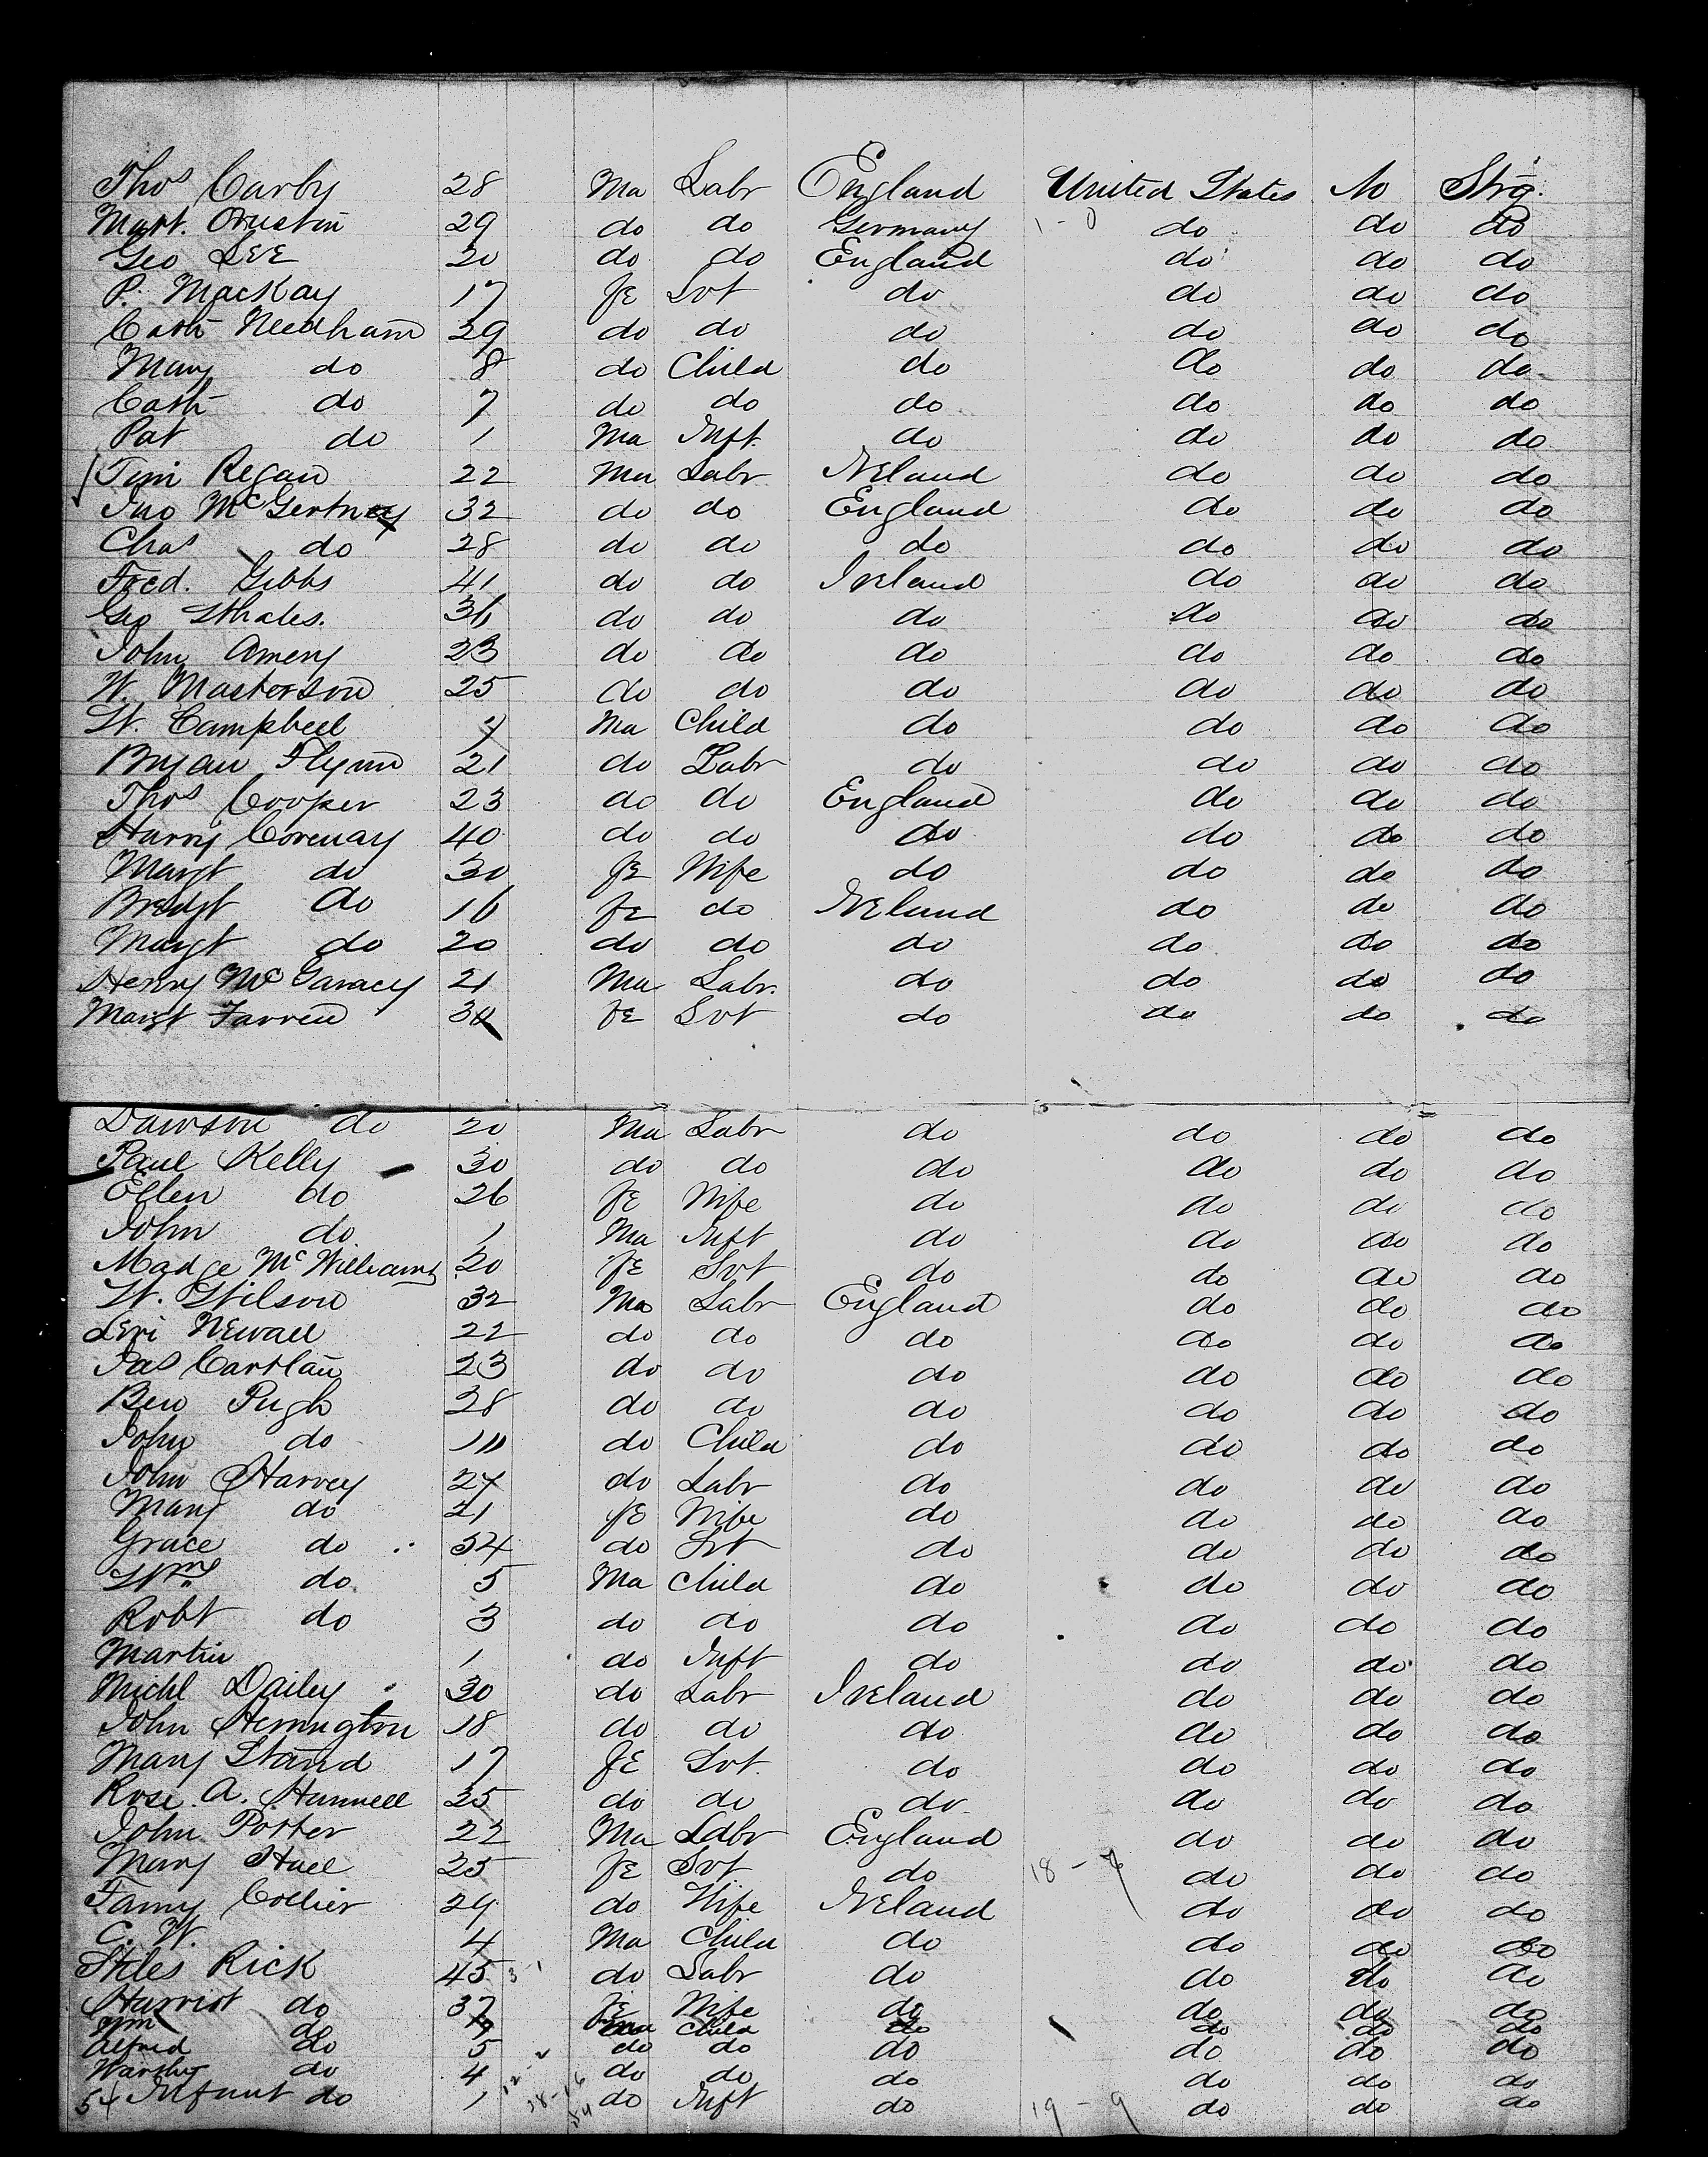 Thos Carby 28 Ma Labr England United States No Strg.
Mart. 29 do do Germany do do do
Geo LEE 20 do do England do do do
P. MacKay 17 fE Svt do do do do
Cath Needham 29 do do do do do do
Mary do 8 do Child do do do do
Cath do 7 do do do do do do
Pat do 1 Ma Inft. do do do do
Tim Regan 22 Ma Labr IrEland do do do
Jno McGertney 32 do do England do do do
Chas do 28 do do do do do do
Fred. Gibbs 41 do do Ireland do do do
Geo 36 do do do do do do
John Amery 23 do do do do do do
W. Masterson 25 do do do do do do
W. Campbell 7 Ma Child do do do do
Bryan Flynn 21 do Labr do do do do
Thos Cooper 23 do do England do do do
Harry Corenay 40 do do do do do do
Margt do 30 fE Wife do do do do
Bredgt do 16 fE do IrEland do do do
Margt do 20 do do do do do do
Henry Mc Garacy 21 Ma Labr. do do do do
Margt Farren 30 fE Svt do do do do
Dawson do 20 Ma Labr do do do do
Paul Kelly 30 do do do do do do
Ellen do 26 fE Wife do do do do
John do 1 Ma Inft do do do do
Madge McWilliams 20 fE Svt do do do do
W. Wilson 32 Ma Labr England do do do
LEvi NEwall 22 do do do do do do
Jas Cartlan 23 do do do do do do
Ben Pugh 28 do do do do do do
John do 10 do Child do do do do
John Harvey 24 do Labr do do do do
Mary do 21 fE Wife do do do do
Grace do 54 do Svt do do do do
Wm do 5 Ma Child do do do do
Robt do 3 do do do do do do
Martin 1 do Inft do do do do
Michl Dailey 30 do Labr Ireland do do do
John Herrington 18 do do do do do do
Mary Stand 17 fE Svt. do do do do
Rose A. Hunwell 25 do do do do do do
John Potter 22 Ma Labr England do do do
Mary Hall 25 fE Svt do 18 - do do do
Fanny Collier 29 do Wife IrEland do do do
C. W. 4 Ma Child do do do do
Stiles Rick 45 3-1 do Labr do do do do
Harriot do 37 fE Wife do do do do
Wm do 7 Ma Child do do do do
Alfred do 5 do do do do do do
do 4 12-2 do do do do do do
54 Infant do 1 18-16 54 do Inft do 19 - 9 do do do